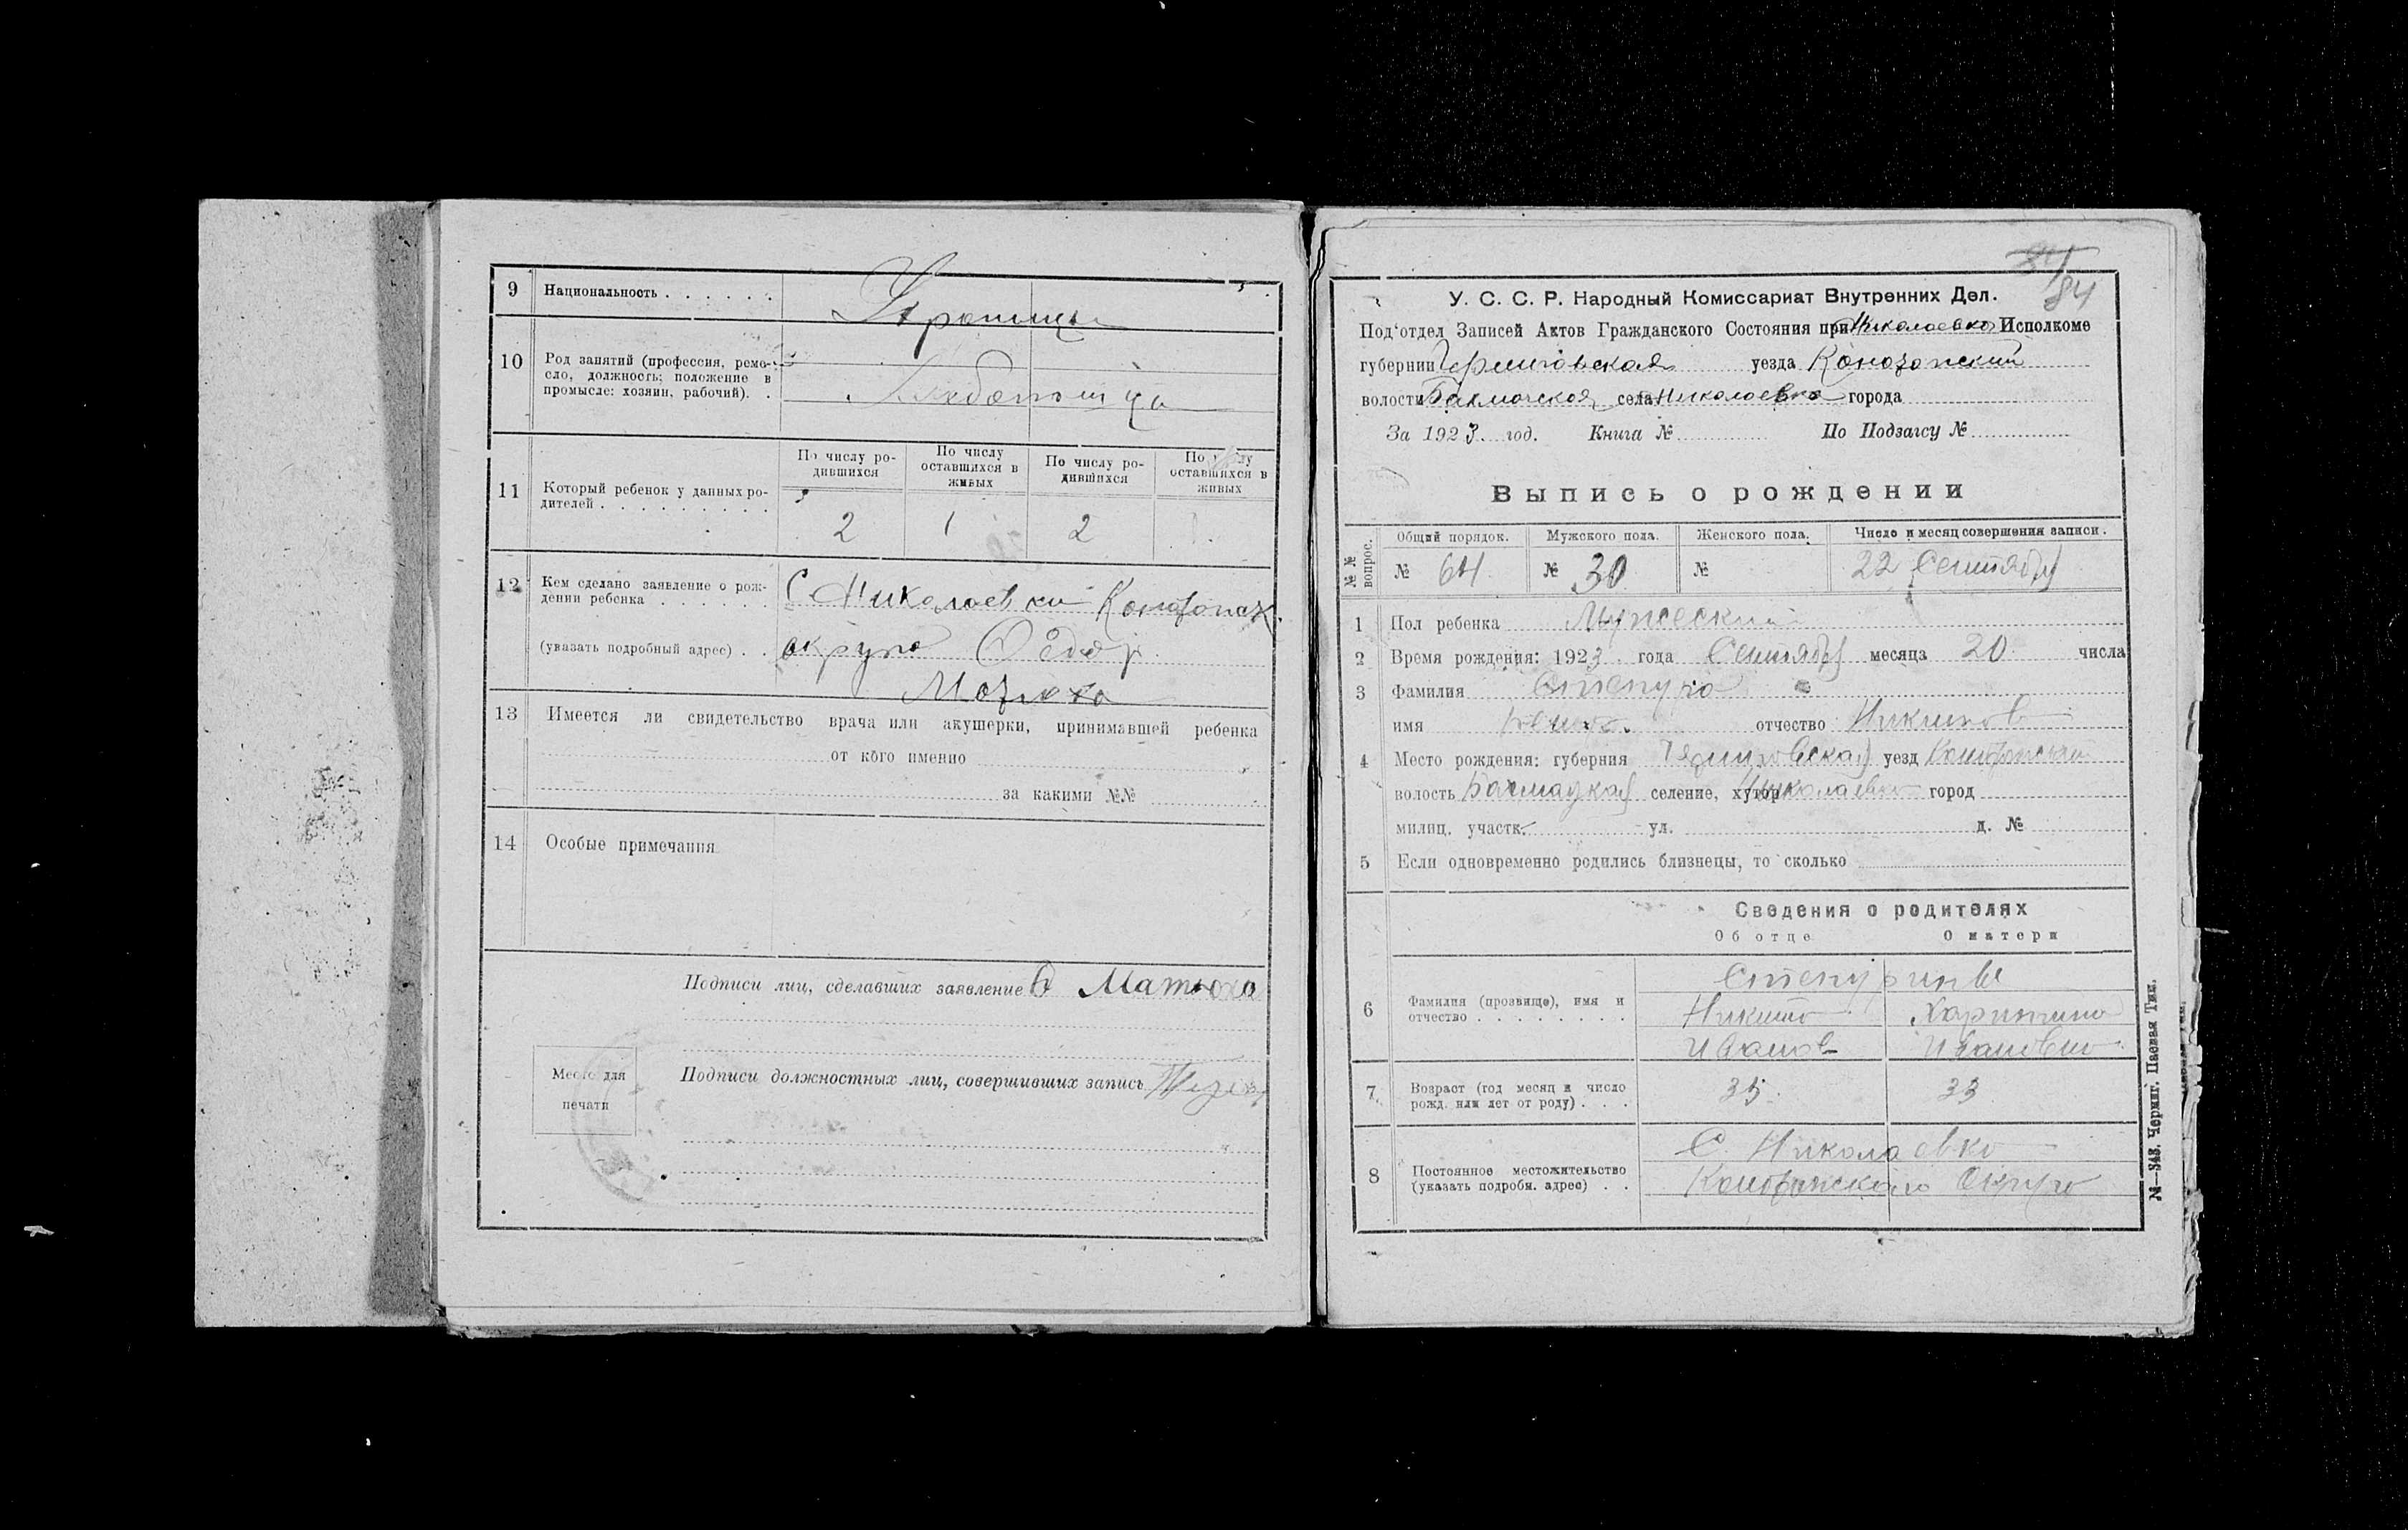 9 Национальность . . . . . .
Украинцы
10 Род занятий (профессия, реме-
сло, должность; положение в
промысле: хозяин, рабочий). .
Хлебопашцы
По числу ро-
дившихся
По числу
оставшихся в
живых
По числу ро-
дившихся
По числу
оставшихся в
живых
11 Который ребенок у данных ро-
дителей . . . . . . . . .
2 1 2
12 Кем сделано заявление о рож-
дении ребенка . . . . . .
С Николаевки Конотопск.
(указать подробный адрес) . .
округа Федор
Матюха
13 Имеется ли свидетельство врача или акушерки, принимавшей ребенка
от кого именно
за какими №№
14 Особые примечания
Подписи лиц, сделавших заявление Ф Матюха
Место для
печати
Подписи должностных лиц, совершивших запись
84
84
У. С. С. Р. Народный Комиссариат Внутренних Дел.
Под'отдел Записей Актов Гражданского Состояния при Николаевком Исполкоме
губернии Черниговская уезда Конотопский
волости Бахмачская села Николаевка города
За 1923 год. Книга № По Подзагсу №
Выпись о рождении
№ № вопрос.
Общий порядок. Мужского пола. Женского пола. Число и месяц совершения записи.
№ 64 № 30 № 22 Сентября
1 Пол ребенка Мужеский
2 Время рождения: 1923 года Сентября месяца 20 числа
3 Фамилия
имя отчество Никитов
4 Место рождения: губерния Черниговская уезд Конотопский
волость Бахмацкая селение, хутор Николаевка город
милиц. участк. ул. д. №
5 Если одновременно родились близнецы, то сколько
Сведения о родителях
Об отце О матери
6 Фамилия (прозвище), имя и
отчество . . . . . . . .
Никита Харитина
Иванов Ивановна
7 Возраст (год месяц и число
рожд. или лет от роду) . . .
35 33
8 Постоянное местожительство
(указать подробн. адрес) . .
С. Николаевка
Конотопского Округа
№—343. Черниг. Паевая Тип.